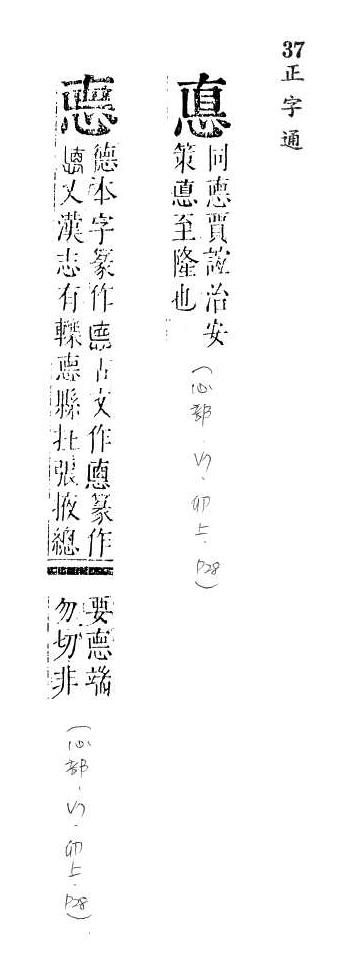 37 正字通
悳
同悳賈誼治安
策悳至隆也
(心部.卯上.P28)
悳
德本字篆作悳古文作悳篆作
又漢志有轢悳縣在張掖總
要悳端
勿切非
(心部.卯上.P28)